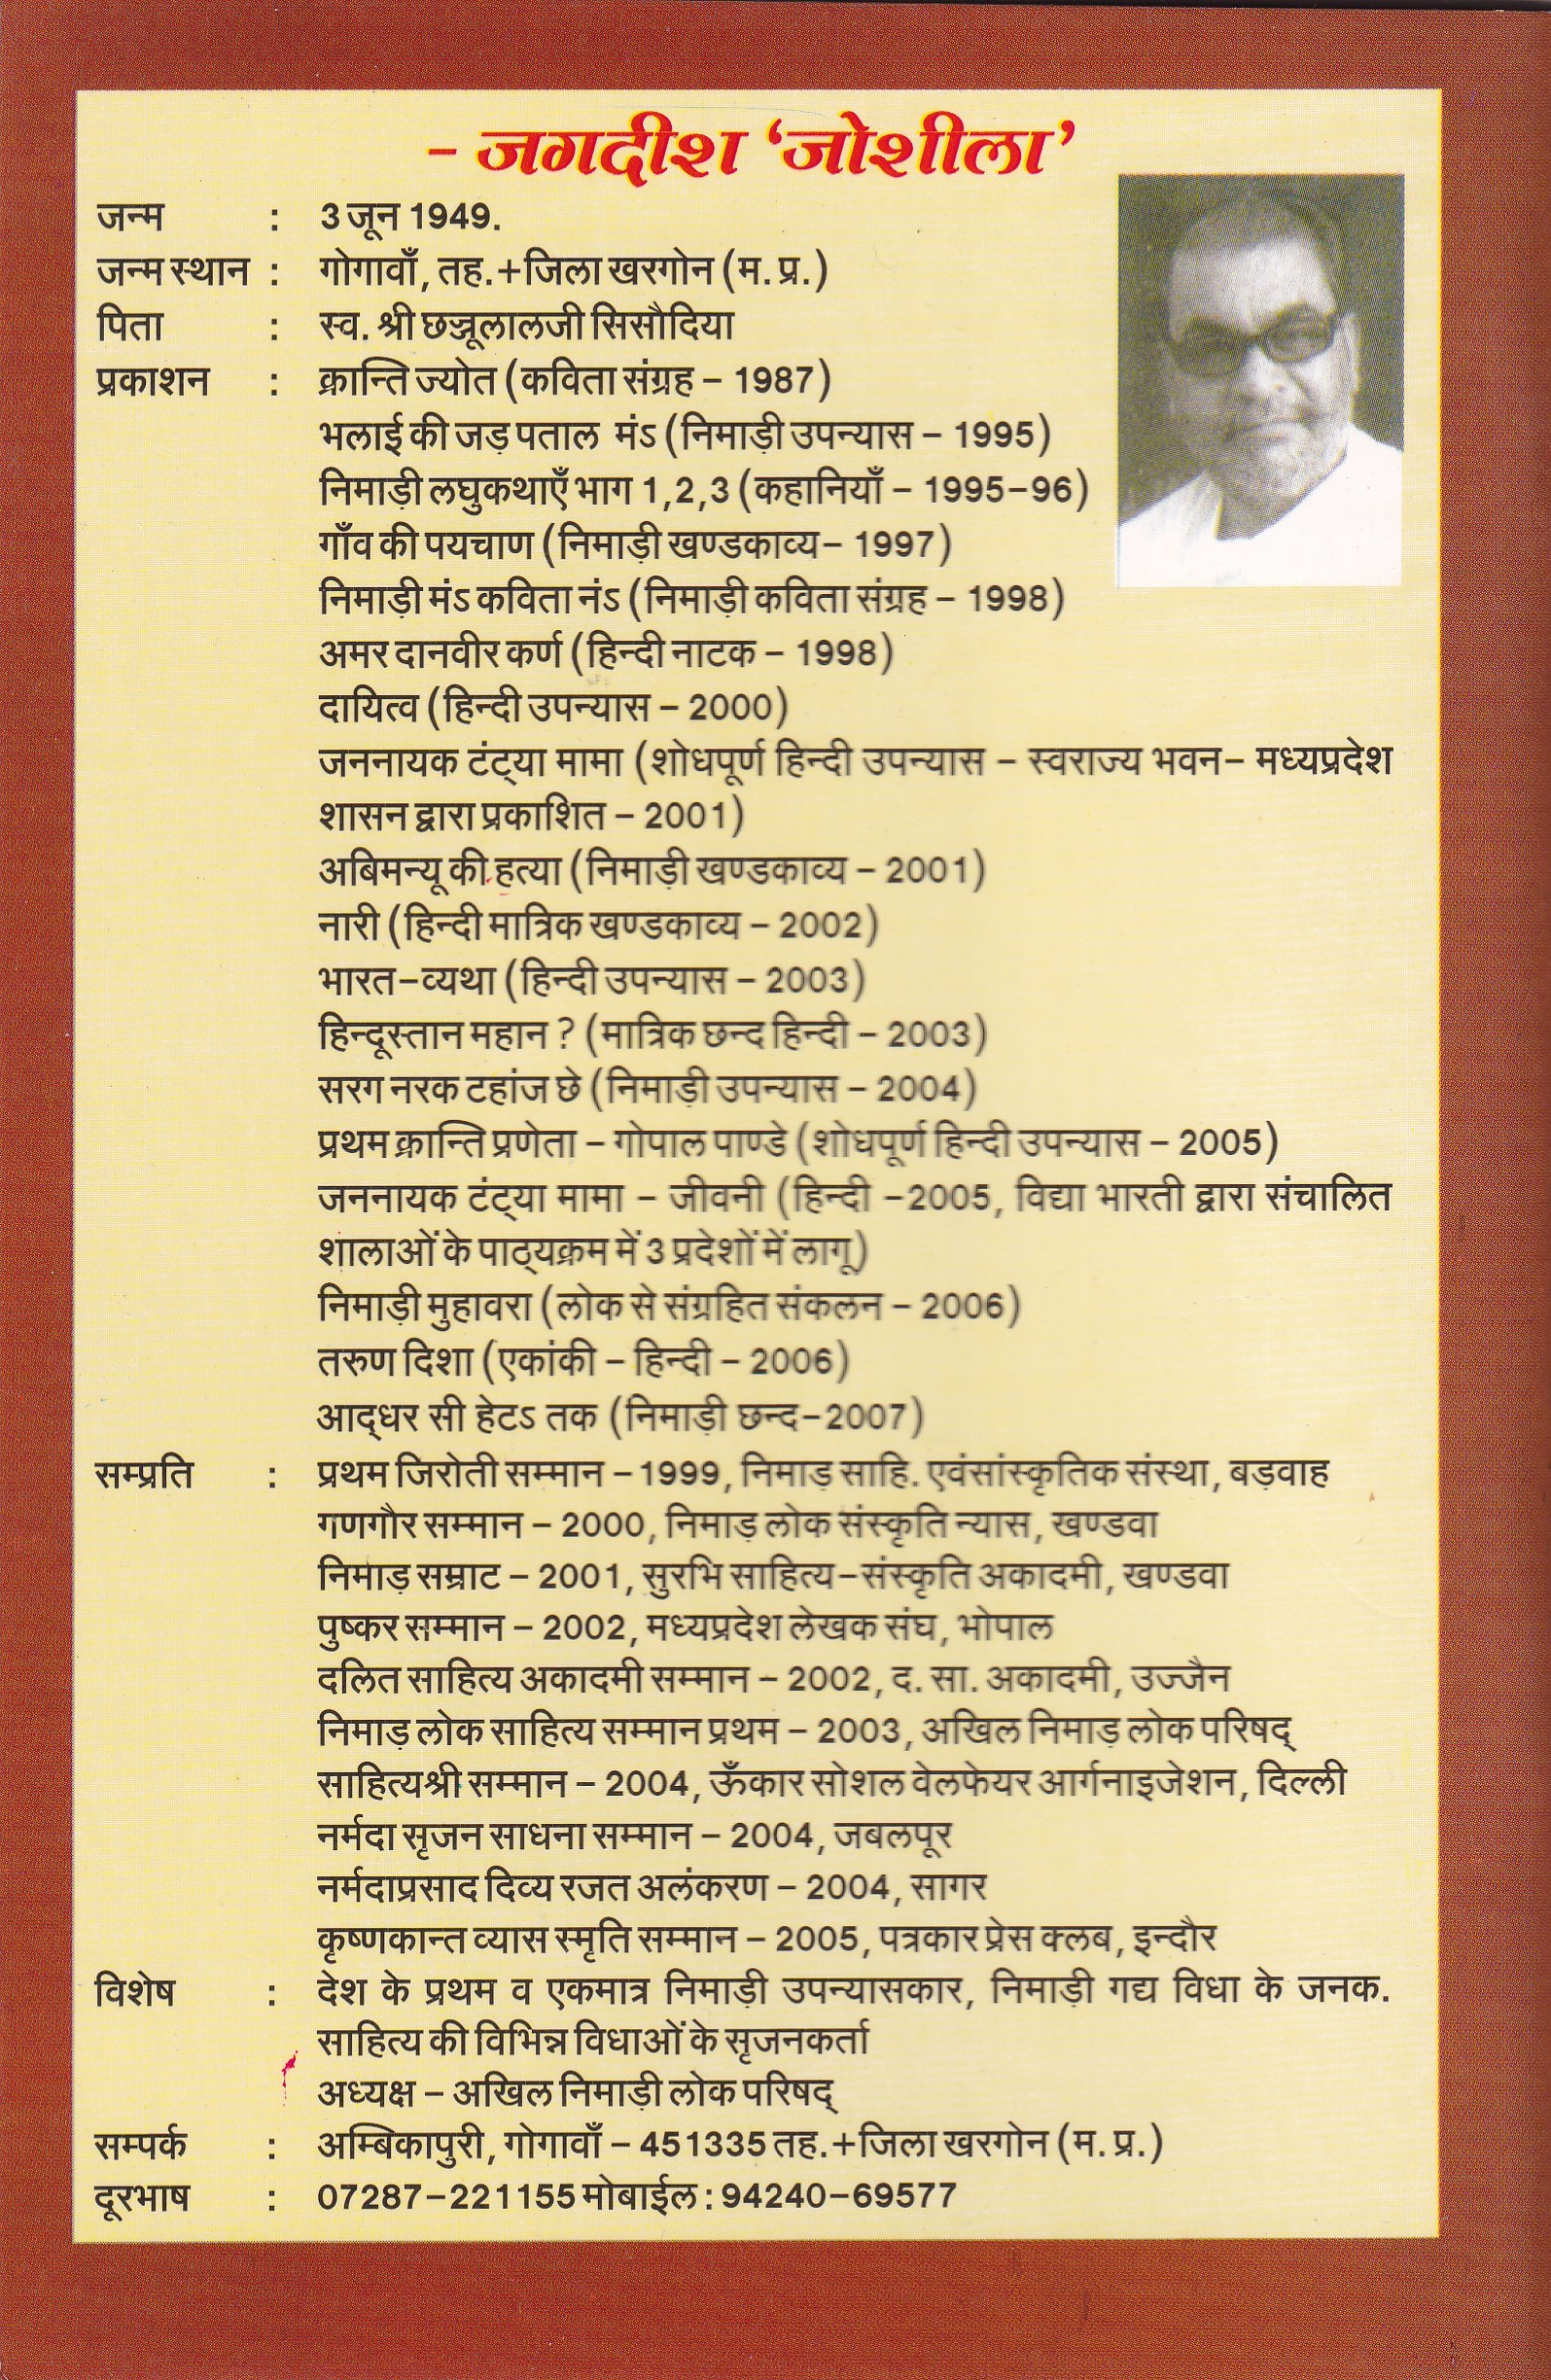 - जगदीश ‘जोशीला’
जन्म : 3 जून 1949.
जन्म स्थान : गोगावाँ, तह.+जिला खरगोन (म. प्र.)
पिता : स्व. श्री छज्जूलालजी सिसौदिया
प्रकाशन : क्रान्ति ज्योत (कविता संग्रह – 1987)
भलाई की जड़ पताल मंऽ (निमाड़ी उपन्यास – 1995)
निमाड़ी लघुकथाएँ भाग 1,2,3 (कहानियाँ – 1995–96)
गाँव की पयचाण (निमाड़ी खण्डकाव्य– 1997)
निमाड़ी मंऽ कविता नंऽ (निमाड़ी कविता संग्रह – 1998)
अमर दानवीर कर्ण (हिन्दी नाटक – 1998)
दायित्व (हिन्दी उपन्यास – 2000)
जननायक टंट्या मामा (शोधपूर्ण हिन्दी उपन्यास – स्वराज्य भवन– मध्यप्रदेश
शासन द्वारा प्रकाशित – 2001)
अबिमन्यू की हत्या (निमाड़ी खण्डकाव्य – 2001)
नारी (हिन्दी मात्रिक खण्डकाव्य – 2002)
भारत–व्यथा (हिन्दी उपन्यास – 2003)
हिन्दूस्तान महान ? (मात्रिक छन्द हिन्दी – 2003)
सरग नरक टहांज छे (निमाड़ी उपन्यास – 2004)
प्रथम क्रान्ति प्रणेता – गोपाल पाण्डे (शोधपूर्ण हिन्दी उपन्यास – 2005)
जननायक टंट्या मामा – जीवनी (हिन्दी –2005, विद्या भारती द्वारा संचालित
शालाओं के पाठ्यक्रम में 3 प्रदेशों में लागू)
निमाड़ी मुहावरा (लोक से संग्रहित संकलन – 2006)
तरुण दिशा (एकांकी – हिन्दी – 2006)
आद्धर सी हेटऽ तक (निमाड़ी छन्द–2007)
सम्प्रति : प्रथम जिरोती सम्मान –1999, निमाड़ साहि. एवंसांस्कृतिक संस्था, बड़वाह
गणगौर सम्मान – 2000, निमाड़ लोक संस्कृति न्यास, खण्डवा
निमाड़ सम्राट – 2001, सुरभि साहित्य–संस्कृति अकादमी, खण्डवा
पुष्कर सम्मान – 2002, मध्यप्रदेश लेखक संघ, भोपाल
दलित साहित्य अकादमी सम्मान – 2002, द. सा. अकादमी, उज्जैन
निमाड़ लोक साहित्य सम्मान प्रथम – 2003, अखिल निमाड़ लोक परिषद्
साहित्यश्री सम्मान – 2004, ऊँकार सोशल वेलफेयर आर्गनाइजेशन, दिल्ली
नर्मदा सृजन साधना सम्मान – 2004, जबलपूर
नर्मदाप्रसाद दिव्य रजत अलंकरण – 2004, सागर
कृष्णकान्त व्यास स्मृति सम्मान – 2005, पत्रकार प्रेस क्लब, इन्दौर
विशेष : देश के प्रथम व एकमात्र निमाड़ी उपन्यासकार, निमाड़ी गद्य विधा के जनक.
साहित्य की विभिन्न विधाओं के सृजनकर्ता
अध्यक्ष – अखिल निमाड़ी लोक परिषद्
सम्पर्क : अम्बिकापुरी, गोगावाँ – 451335 तह.+जिला खरगोन (म. प्र.)
दूरभाष : 07287–221155 मोबाईल : 94240–69577